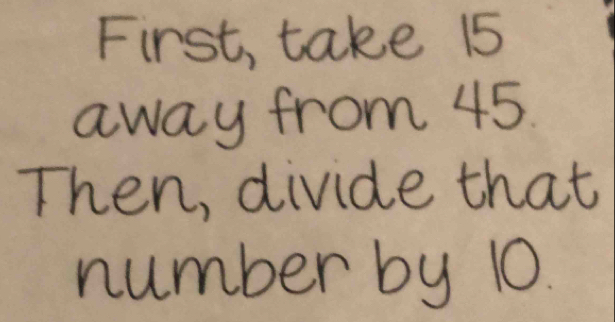 First, take 15
away from 45.
Then, divide that
number by 10.